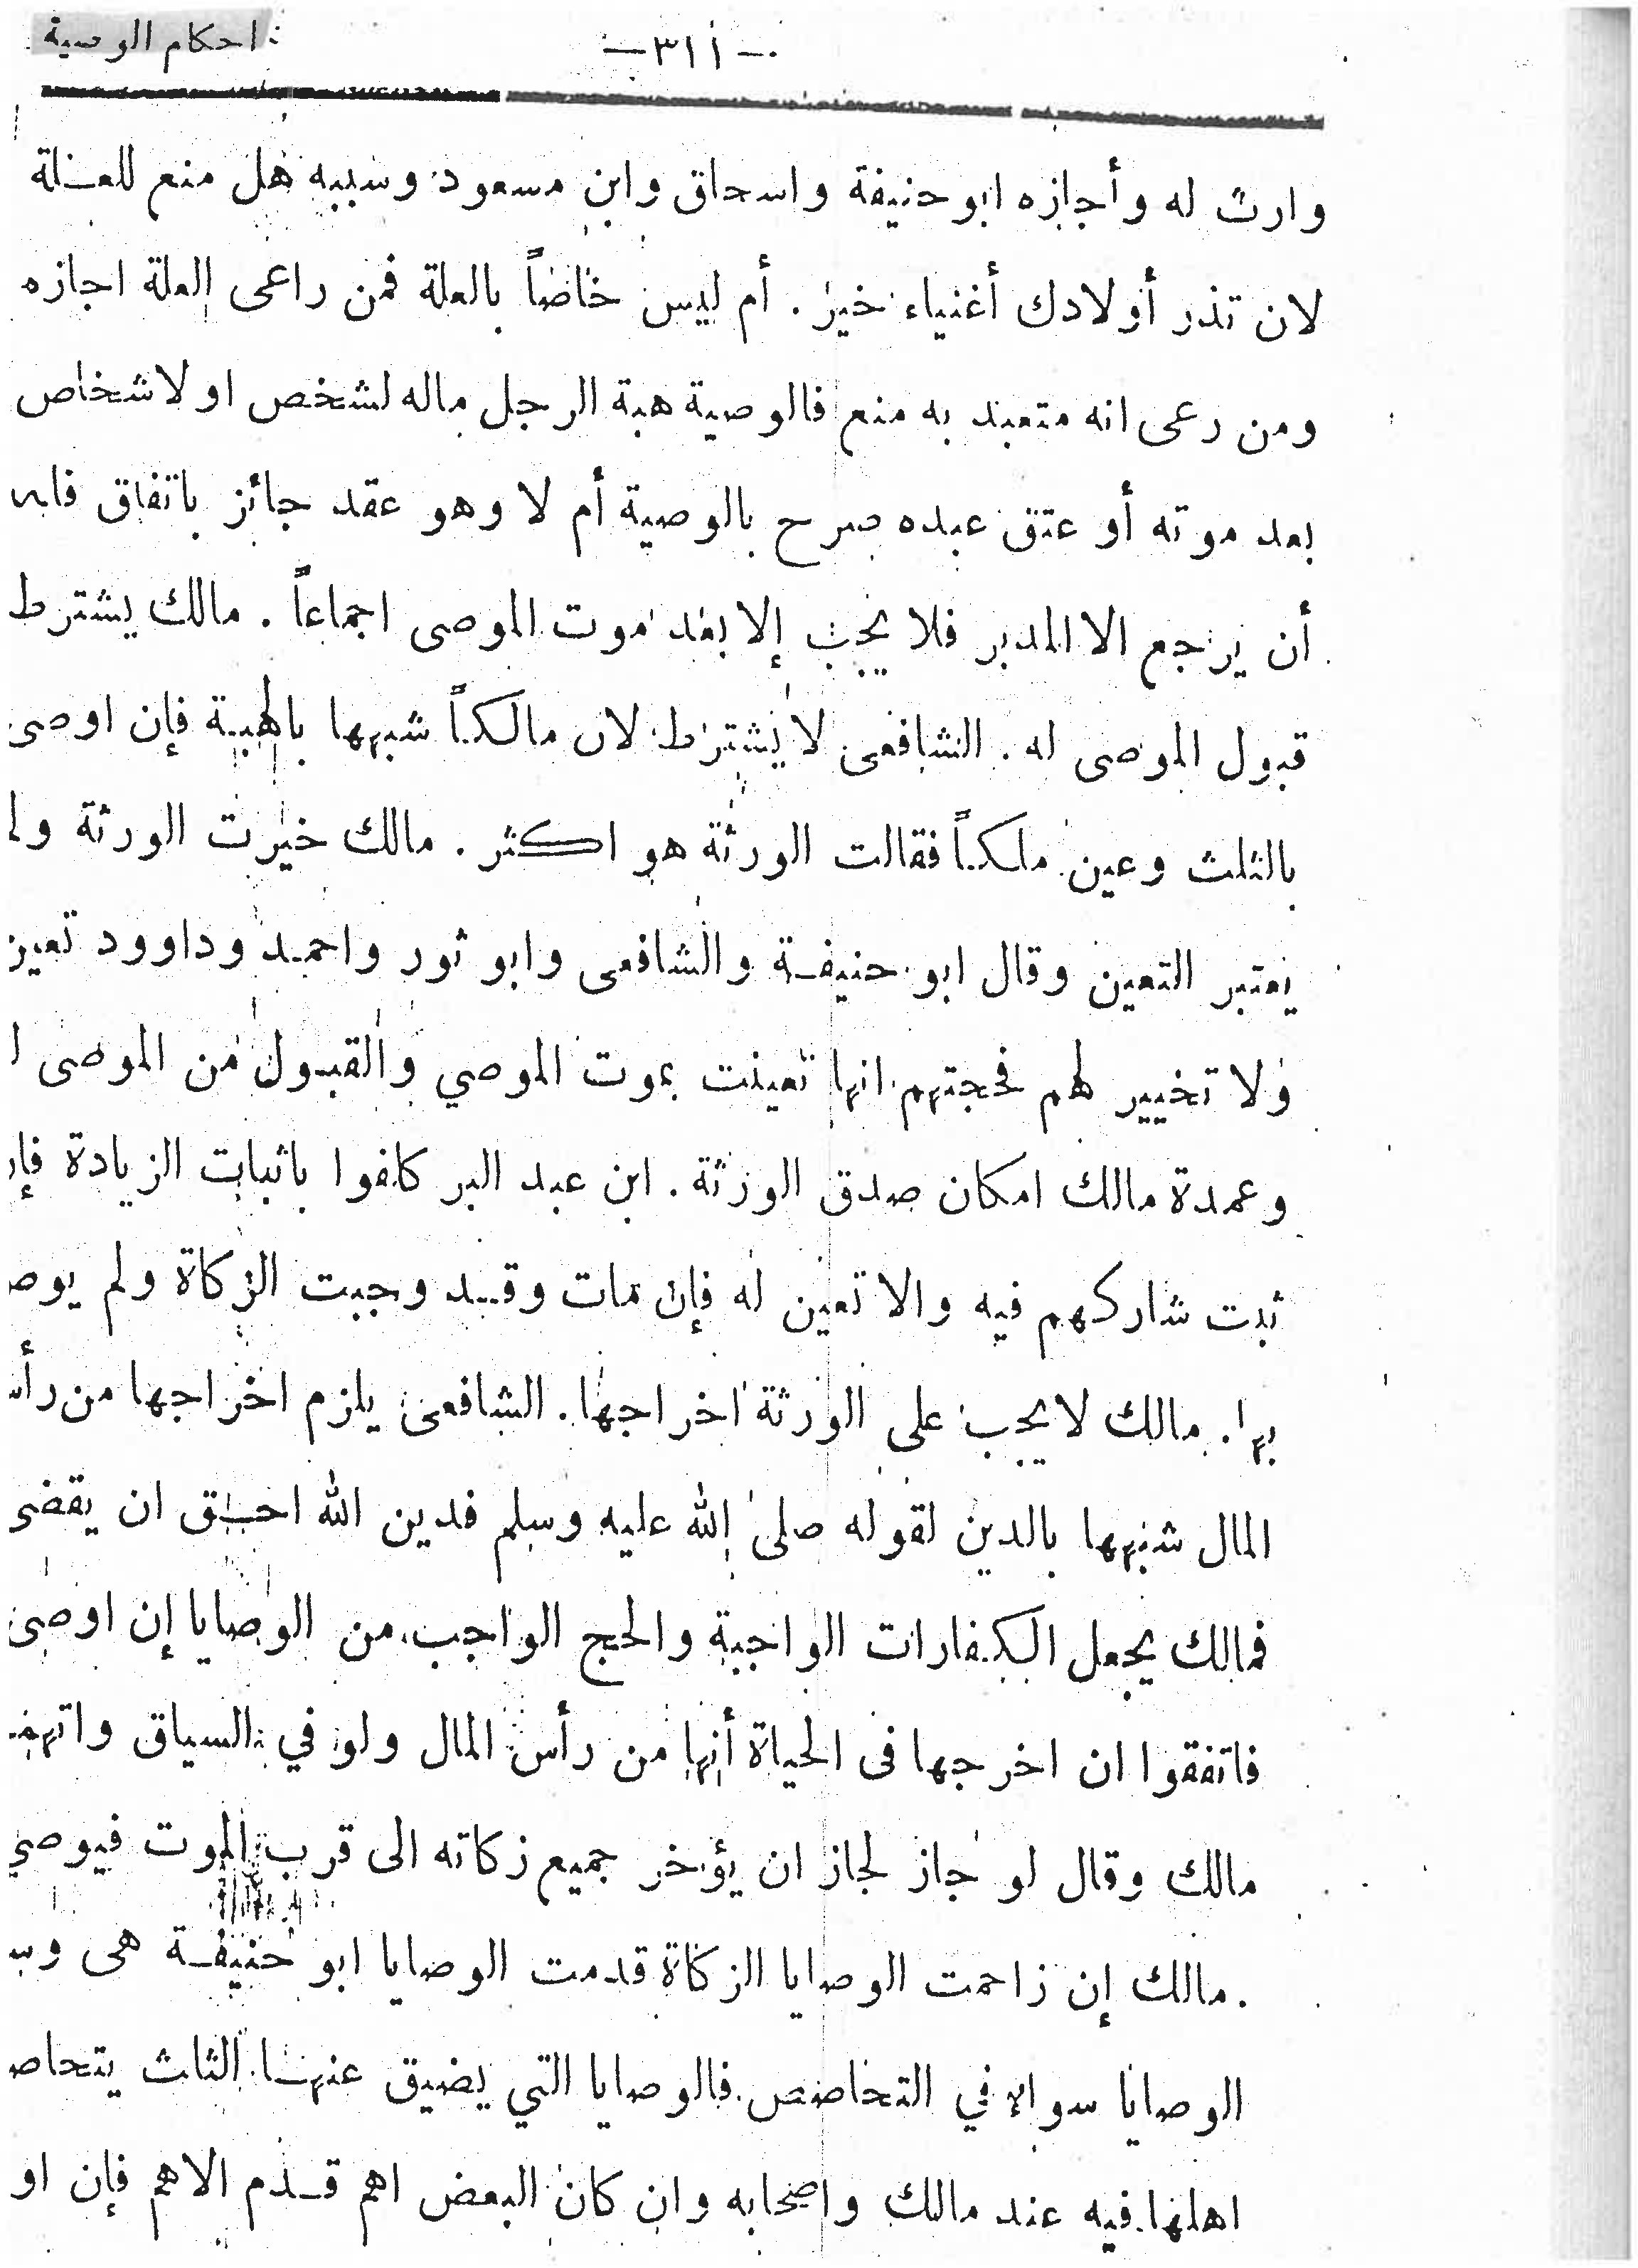 احكام الوصية
— ٣١١ —
وارث له وأجازه ابو حنيفة واسحاق وابن مسعود وسببه هل منع للعلة
لان تذر أولادك أغنياء خير . أم ليس خاصاً بالعلة فمن راعى العلة اجازه
ومن رعى انه متعبد به منع فالوصية هبة الرجل ماله لشخص او لاشخاص
بعد موته أو عتق عبده صرح بالوصية أم لا وهو عقد جائز باتفاق فله
أن يرجع الا المدبر فلا يجب إلا بعد موت الموصى اجماعاً . مالك يشترط
قبول الموصى له . الشافعى لا يشترط لان مالكاً شبهها بالهبة فإن اوصى
بالثلث وعين ملكاً فقالت الورثة هو اكثر . مالك خيرت الورثة ولم
يعتبر التعين وقال ابو حنيفة والشافعى وابو ثور واحمد وداوود تعين
ولا تخيير لهم فحجتهم انها تعينت بموت الموصي والقبول من الموصى
وعمدة مالك امكان صدق الورثة . ابن عبد البر كلفوا باثبات الزيادة فإن
ثبت شاركهم فيه والا تعين له فإن مات وقد وجبت الزكاة ولم يوص
بها . مالك لا يجب على الورثة اخراجها . الشافعى يلزم اخراجها من رأس
المال شبهها بالدين لقوله صلى الله عليه وسلم فدين الله احق ان يقضى
فمالك يجعل الكفارات الواجبة والحج الواجب من الوصايا إن اوصى
فاتفقوا ان اخرجها فى الحياة أنها من رأس المال ولو في السياق واتهمه
مالك وقال لو جاز لجاز ان يؤخر جميع زكاته الى قرب الموت فيوصي
. مالك إن زاحمت الوصايا الزكاة قدمت الوصايا ابو حنيفة هى
الوصايا سواء في التحاصص فالوصايا التي يضيق عنها الثلث يتحاص
اهلها فيه عند مالك واصحابه وان كان البعض اهم قدم الاهم فإن او